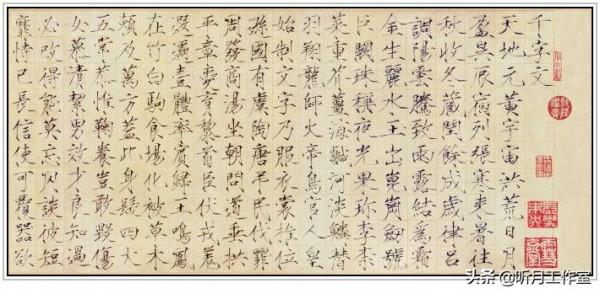 千字文
天地元黄宇宙洪荒日月
盈昃辰宿列張寒来暑往
秋收冬藏閏餘成歲律吕
調陽雲騰致雨露結為霜
金生麗水玉出崑崗劍號
巨闕珠稱夜光果珍李柰
菜重芥薑海鹹河淡鱗潛
羽翔龍師火帝鳥官人皇
始制文字乃服衣裳推位
遜國有虞陶唐弔民伐罪
周發商湯坐朝問道垂拱
平章愛育黎首臣伏戎羌
遐邇壹體率賓歸王鳴鳳
在竹白駒食場化被草木
賴及萬方蓋此身髮四大
五常恭惟鞠養豈敢毀傷
女慕清絜男效才良知過
必改得能莫忘罔談彼短
靡恃己長信使可覆器欲
头条 @昕月工作室